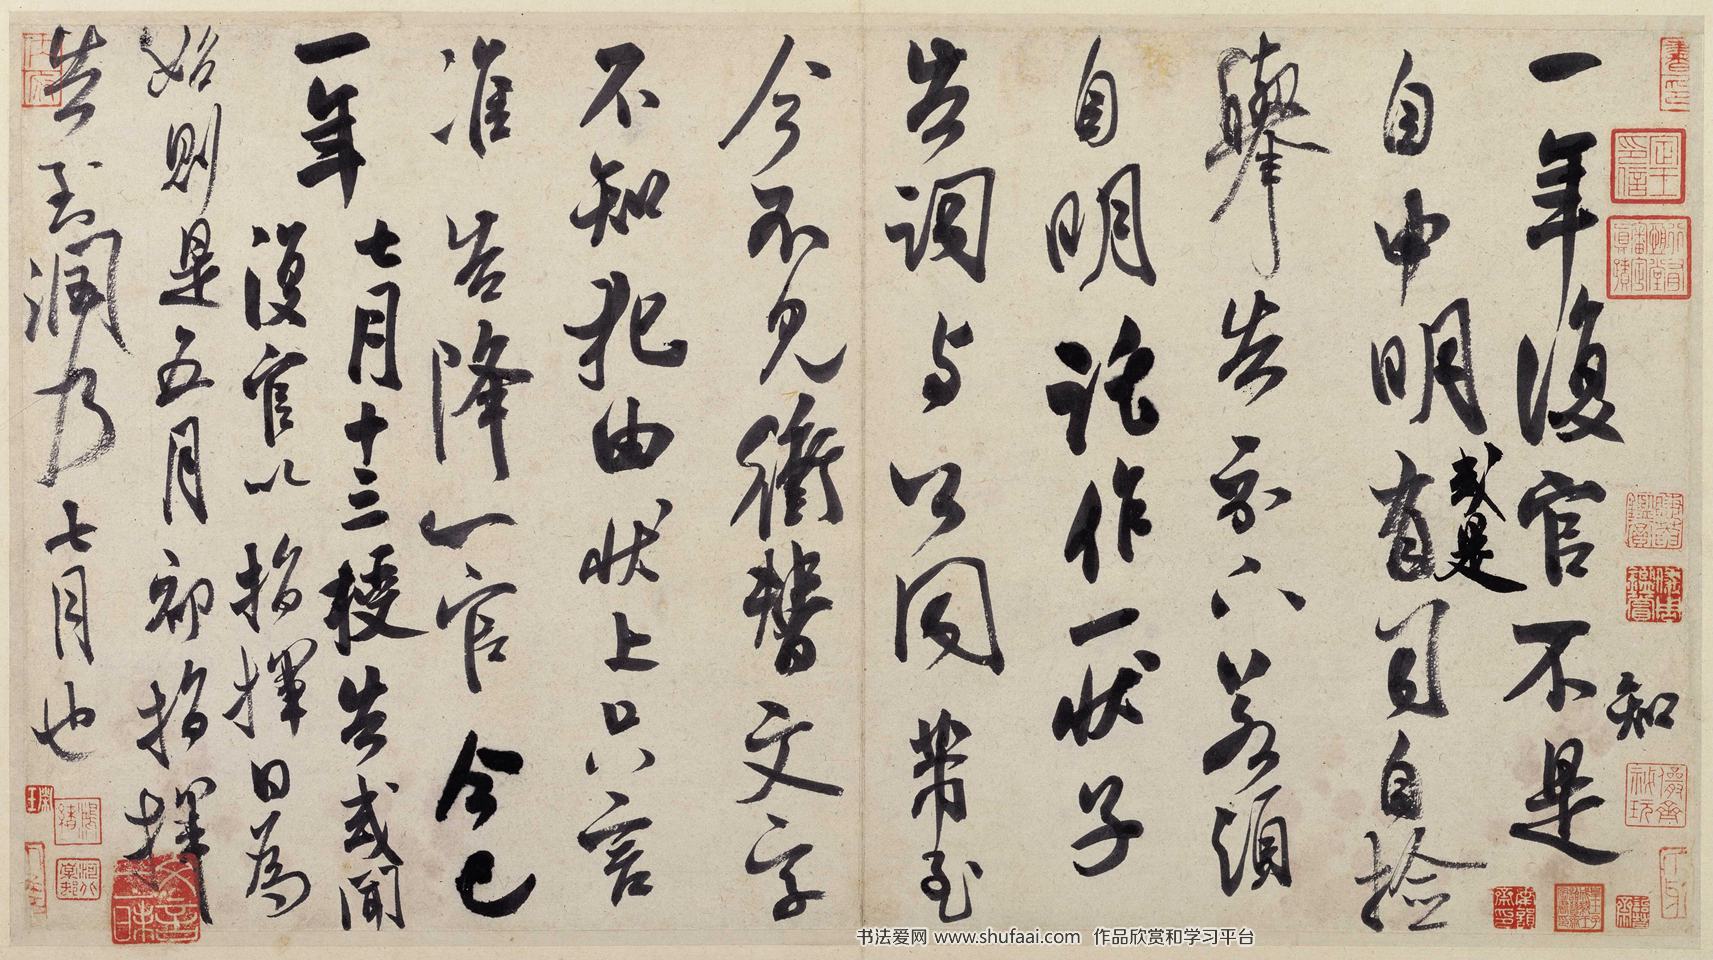 一年復官不是
知
自申明有司自撿
或是
舉告示 若須
自明託作一狀子
告詞与公同帶至
今不見衝替文字
不知犯由狀上只言
准告降一官今已
一年
七月十三授告或聞
復官以指揮日為
始則是五月初指揮
告至潤乃七月也
书法爱网 www.shufaai.com 作品欣赏和学习平台